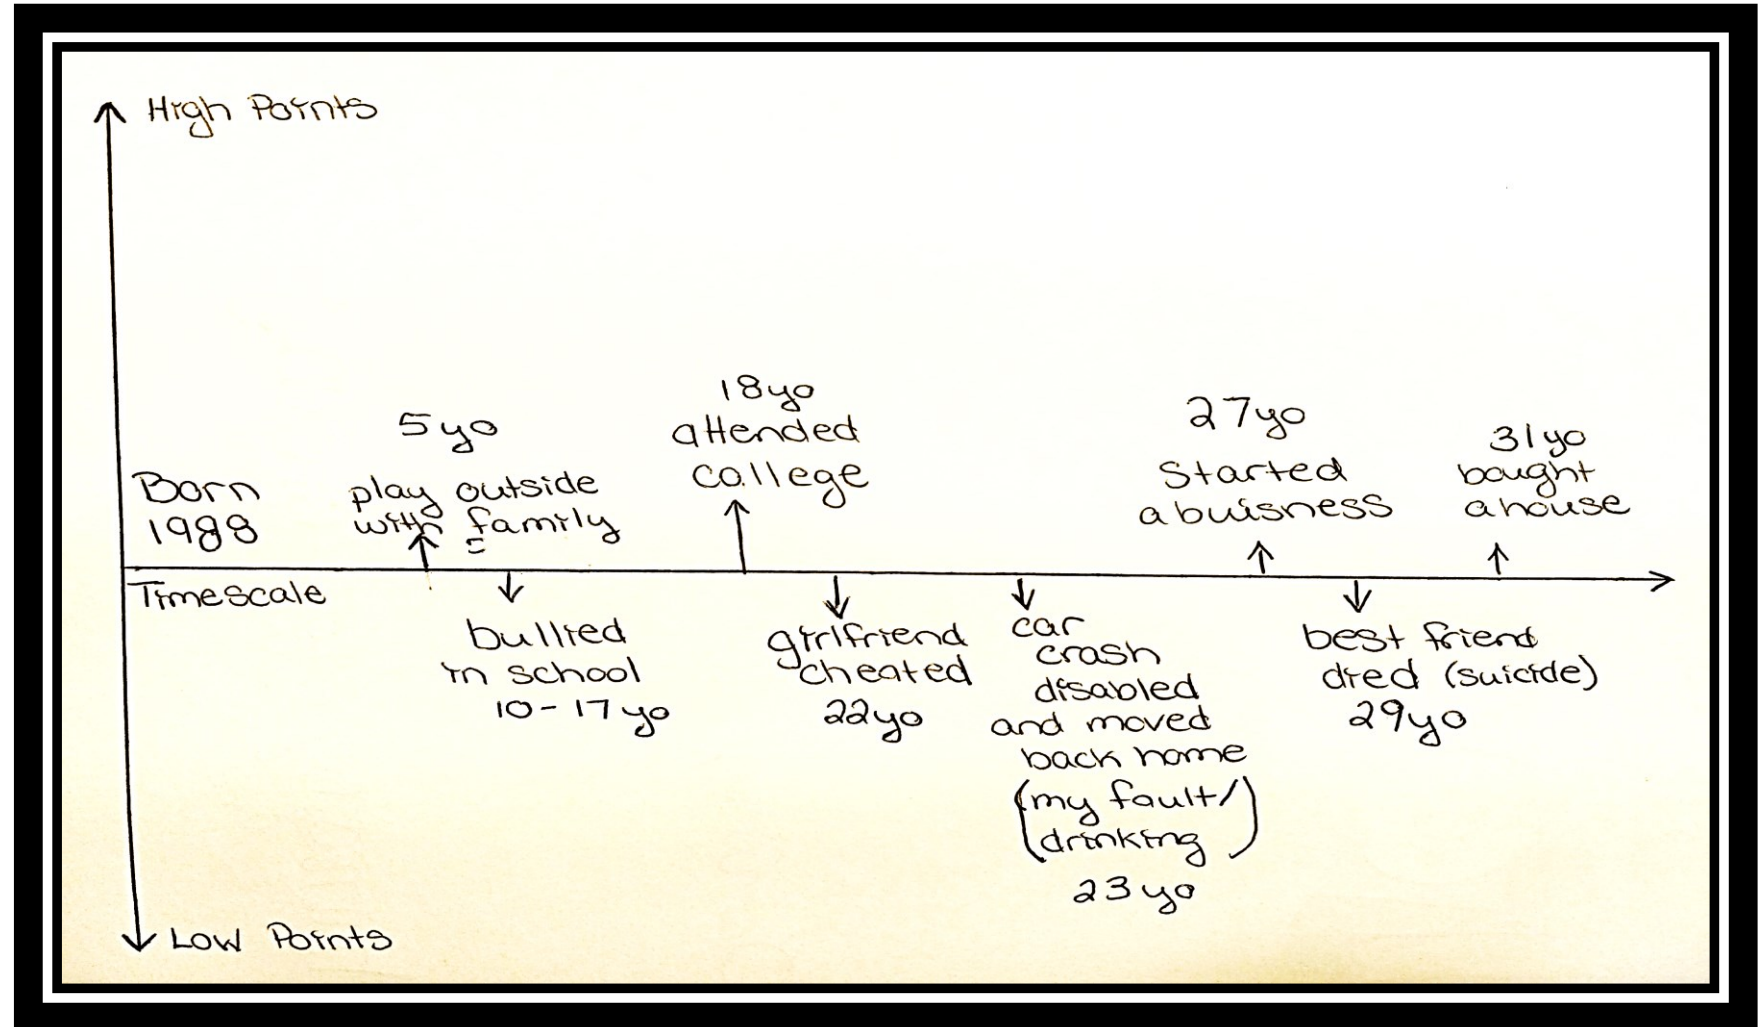 High Points
Born
1988
5yo
play outside
with family
18yo
attended
college
27yo
Started
a buisness
31yo
bought
a house
Timescale
bullied
in school
10-17yo
girlfriend
cheated
22yo
car
crash
disabled
and moved
back home
(my fault/
drinking)
23yo
best friend
died (suicide)
29yo
Low Points